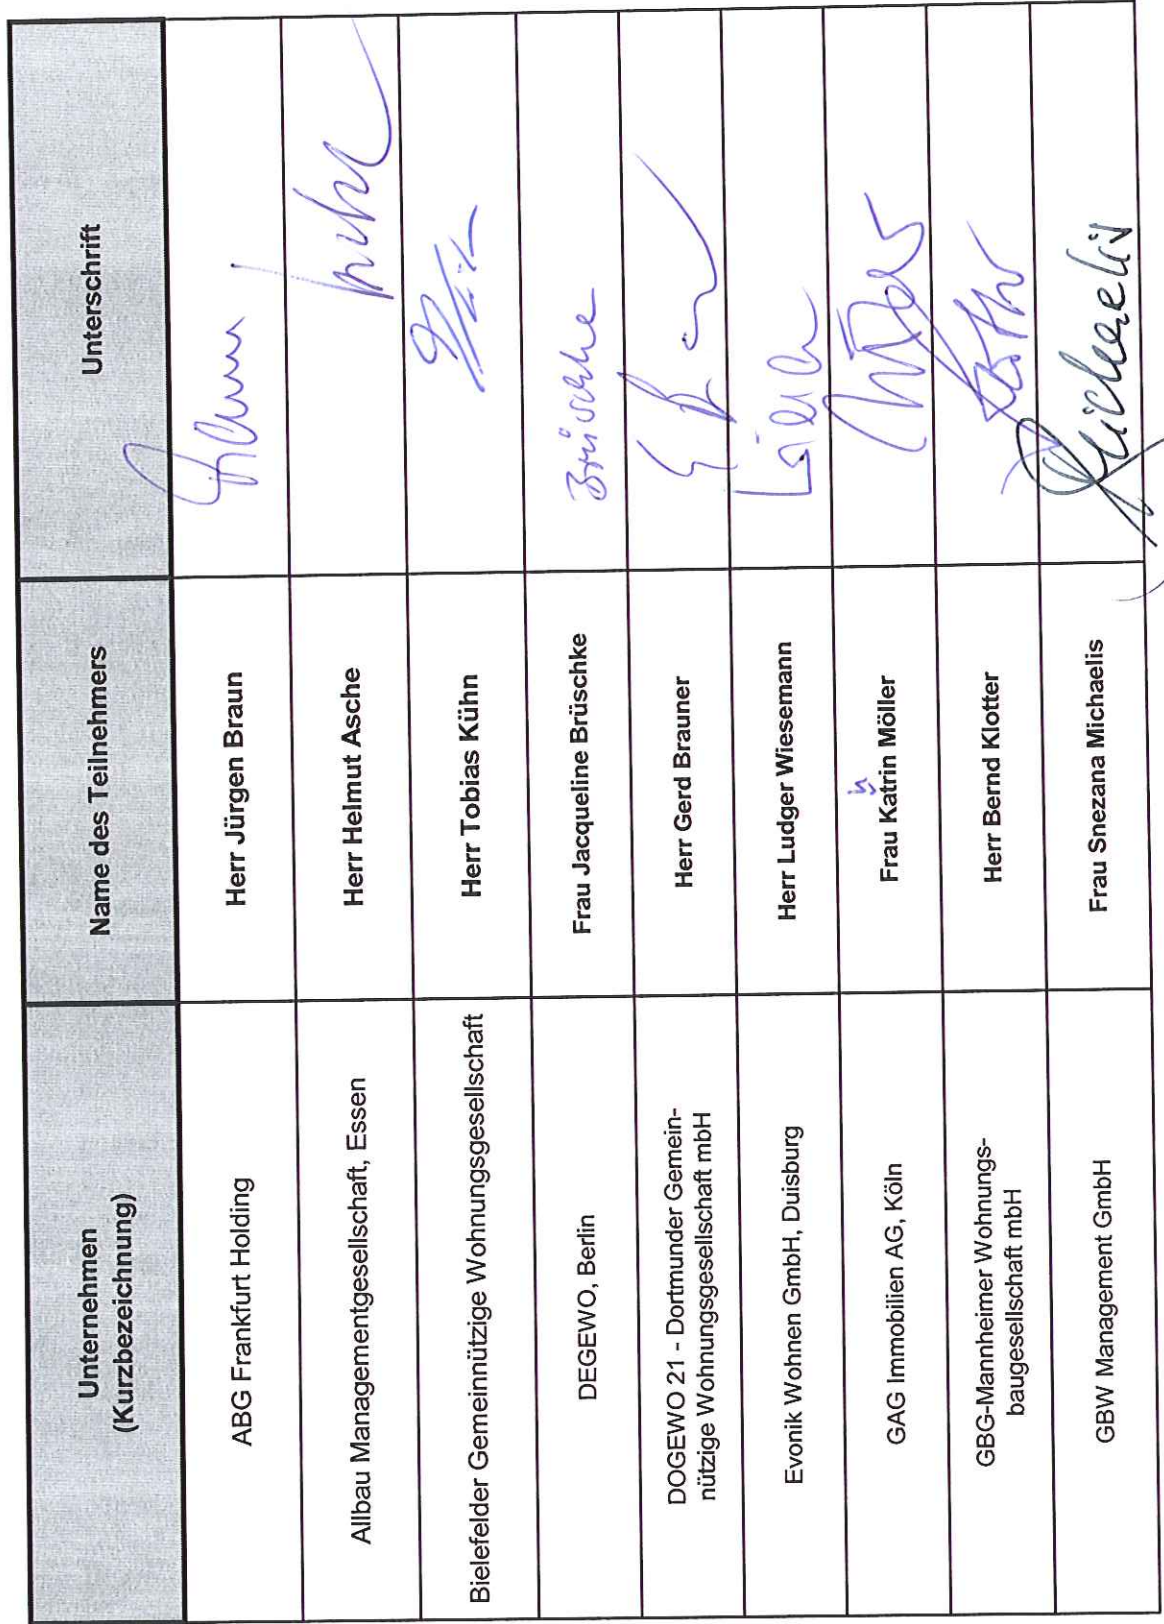 Unternehmen
(Kurzbezeichnung)
Name des Teilnehmers
Unterschrift
ABG Frankfurt Holding
Herr Jürgen Braun
Braun
Allbau Managementgesellschaft, Essen
Herr Helmut Asche
Bielefelder Gemeinnützige Wohnungsgesellschaft
Herr Tobias Kühn
DEGEWO, Berlin
Frau Jacqueline Brüschke
Brüschke
DOGEWO 21 - Dortmunder Gemein-
nützige Wohnungsgesellschaft mbH
Herr Gerd Brauner
Evonik Wohnen GmbH, Duisburg
Herr Ludger Wiesemann
GAG Immobilien AG, Köln
Frau Katrin Möller
GBG-Mannheimer Wohnungs-
baugesellschaft mbH
Herr Bernd Klotter
Klotter
GBW Management GmbH
Frau Snezana Michaelis
Michaelis